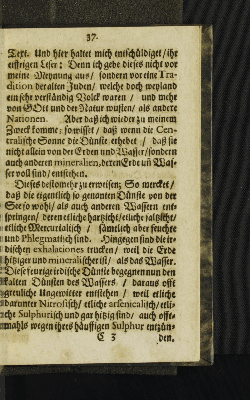 37.
Text. Und hier haltet mich entschuldiget/ ihr
eiffrigen Leser: Denn ich gebe dieses nicht vor
meine Meynung aus/ sondern vor eine Tra-
dition der alten Juden/ welche doch weyland
ein sehr verständig Volck waren / und mehr
von GOtt und der Natur wusten/ als andere
Nationen. Aber daß ich wieder zu meinem
Zweck komme; so wisset / daß wenn die Cen-
tralische Sonne die Dünste erhebet / daß sie
nicht allein von der Erden und Wasser/ sondern
auch anderen mineralien, deren Erde uñ Was-
ser voll sind/ entstehen.
Dieses desto mehr zu erweisen; So mercket/
daß die eigentlich so genanten Dünste von der
See so wohl/ als auch anderen Wassern ent-
springen/ deren etliche hartzicht/ etliche saltzicht/
etliche Mercurialisch / sämtlich aber feuchte
und Phlegmatisch sind. Hingegen sind die ir-
dischen exhalationes trucken/ weil die Erde
hitziger und mineralischer ist/ als das Wasser.
Diese feurige irdische Dünste begegnen nun den
kalten Dünsten des Wassers / daraus offt
greuliche Ungewitter entstehen / weil etliche
darunter Nitrosisch/ etliche arsenicalisch/ etli-
che Sulphurisch und gar hitzig sind/ auch offt-
mahls wegen ihres häuffigen Sulphur entzün-
C 3 den.